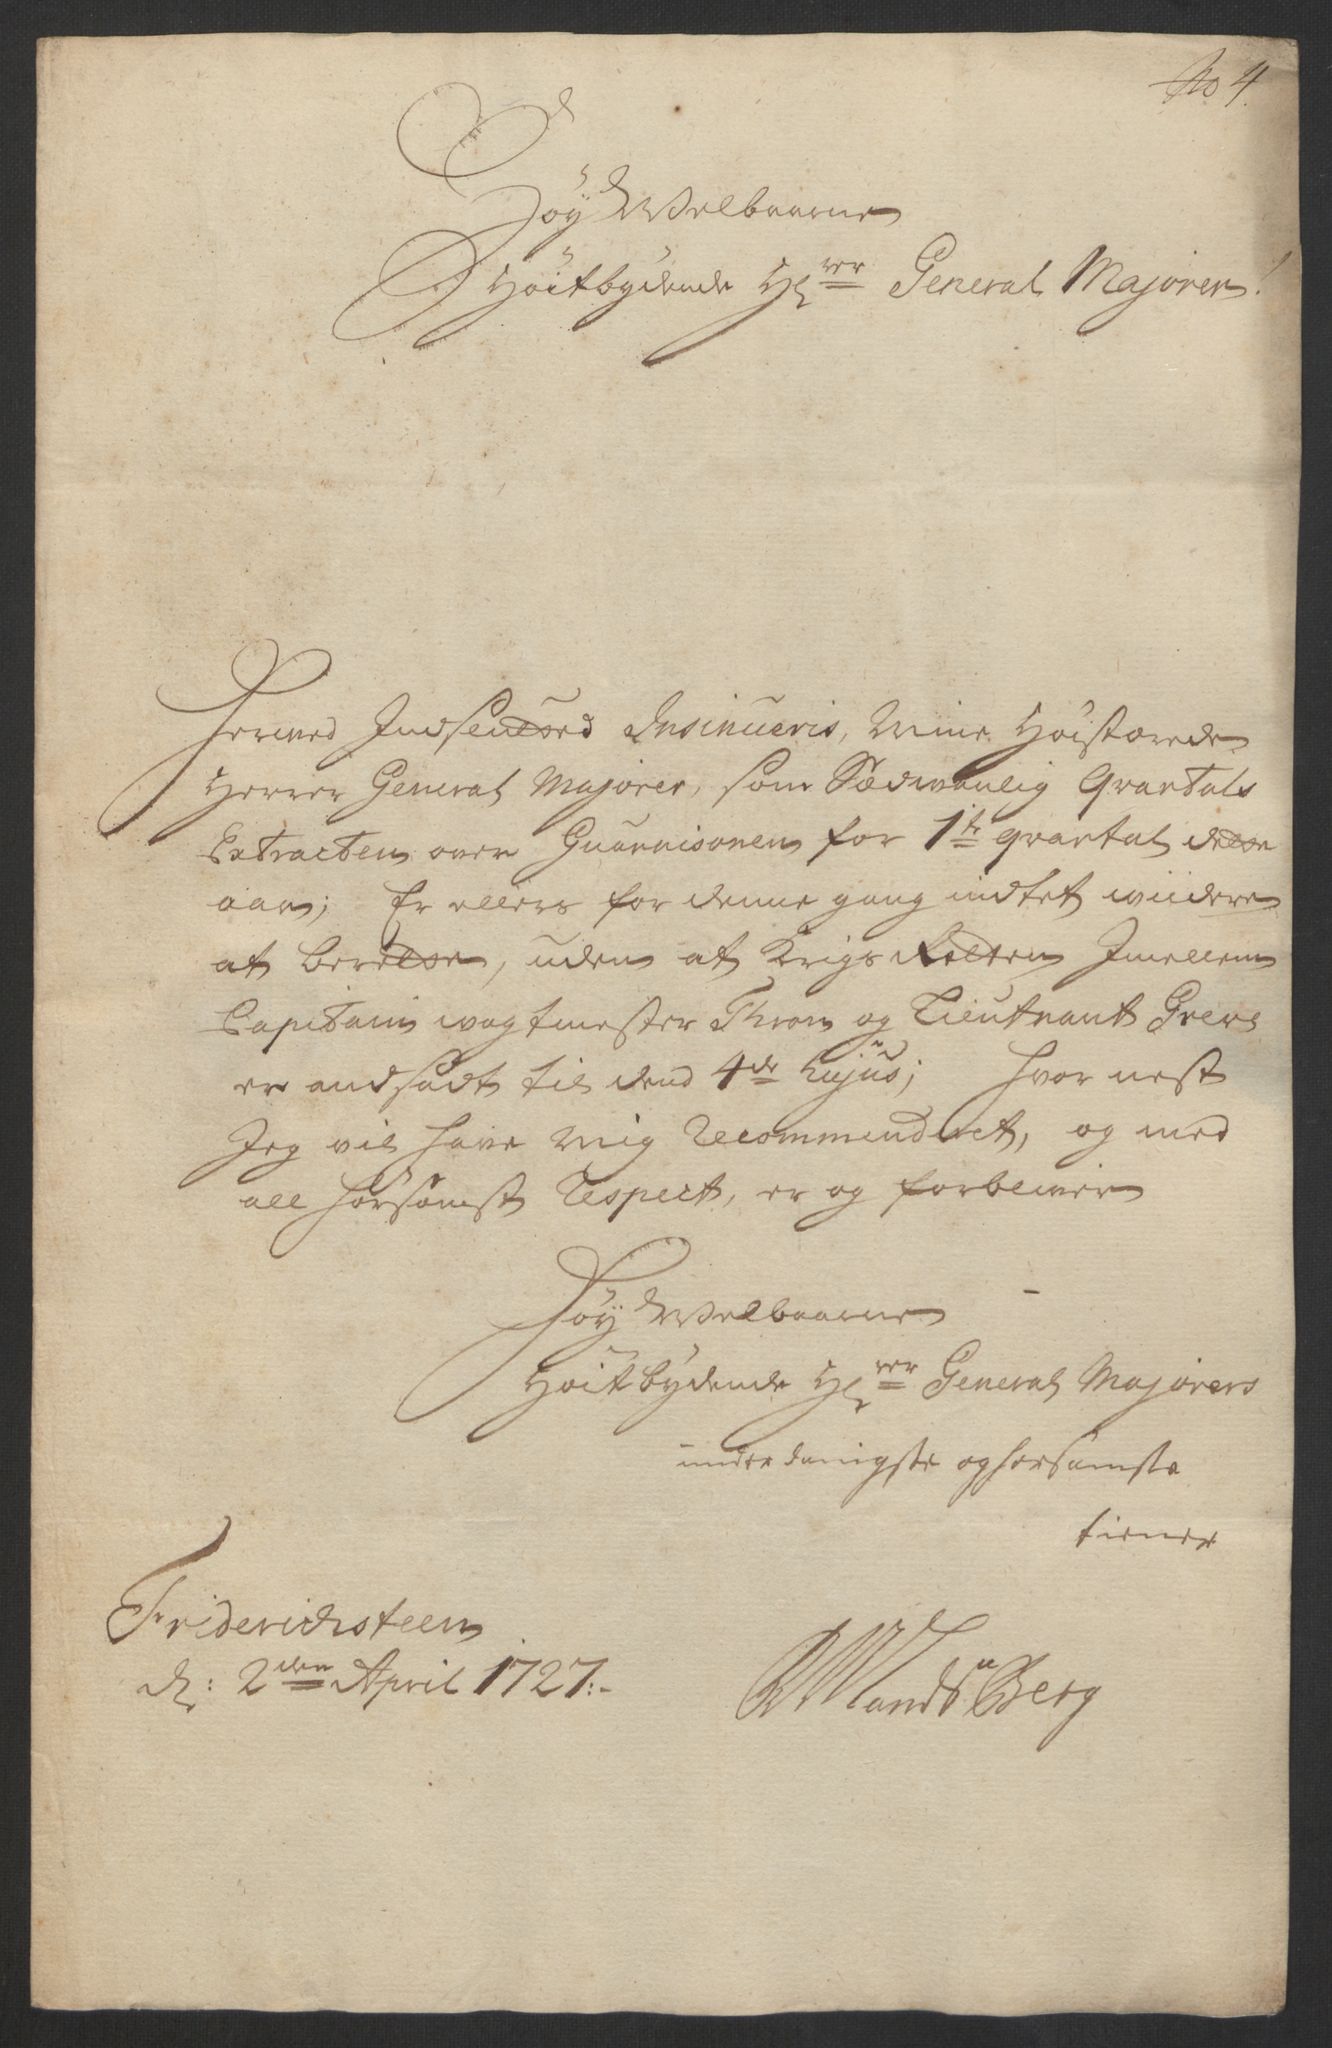 No 4.
Høy Welbaarne
Høitbydende Hr General Majorer!
Hermed Indsendes Insinueris, Mine Høistærede
Herrer General Majorer, som Sædwanlig Qvartals
Extracten over Guarnisonen for 1te qvartal dette
aar; Er ellers for denne gang indtet wiidere
at berette, uden at Krigs Retten Imellem
Capitain wagtmester Thron og Lieutnant Greve
er andsadt til dend 4de hujus; hvor nest
Jeg vil have Mig recommenderet, og med
all hørsomst respect, er og forbliver
Høy Welbaarne
Høitbydende Hr General Majorers
underdanigste og hørsamste
tiener
Friderichsteen
d: 2den April 1727.
Landsberg